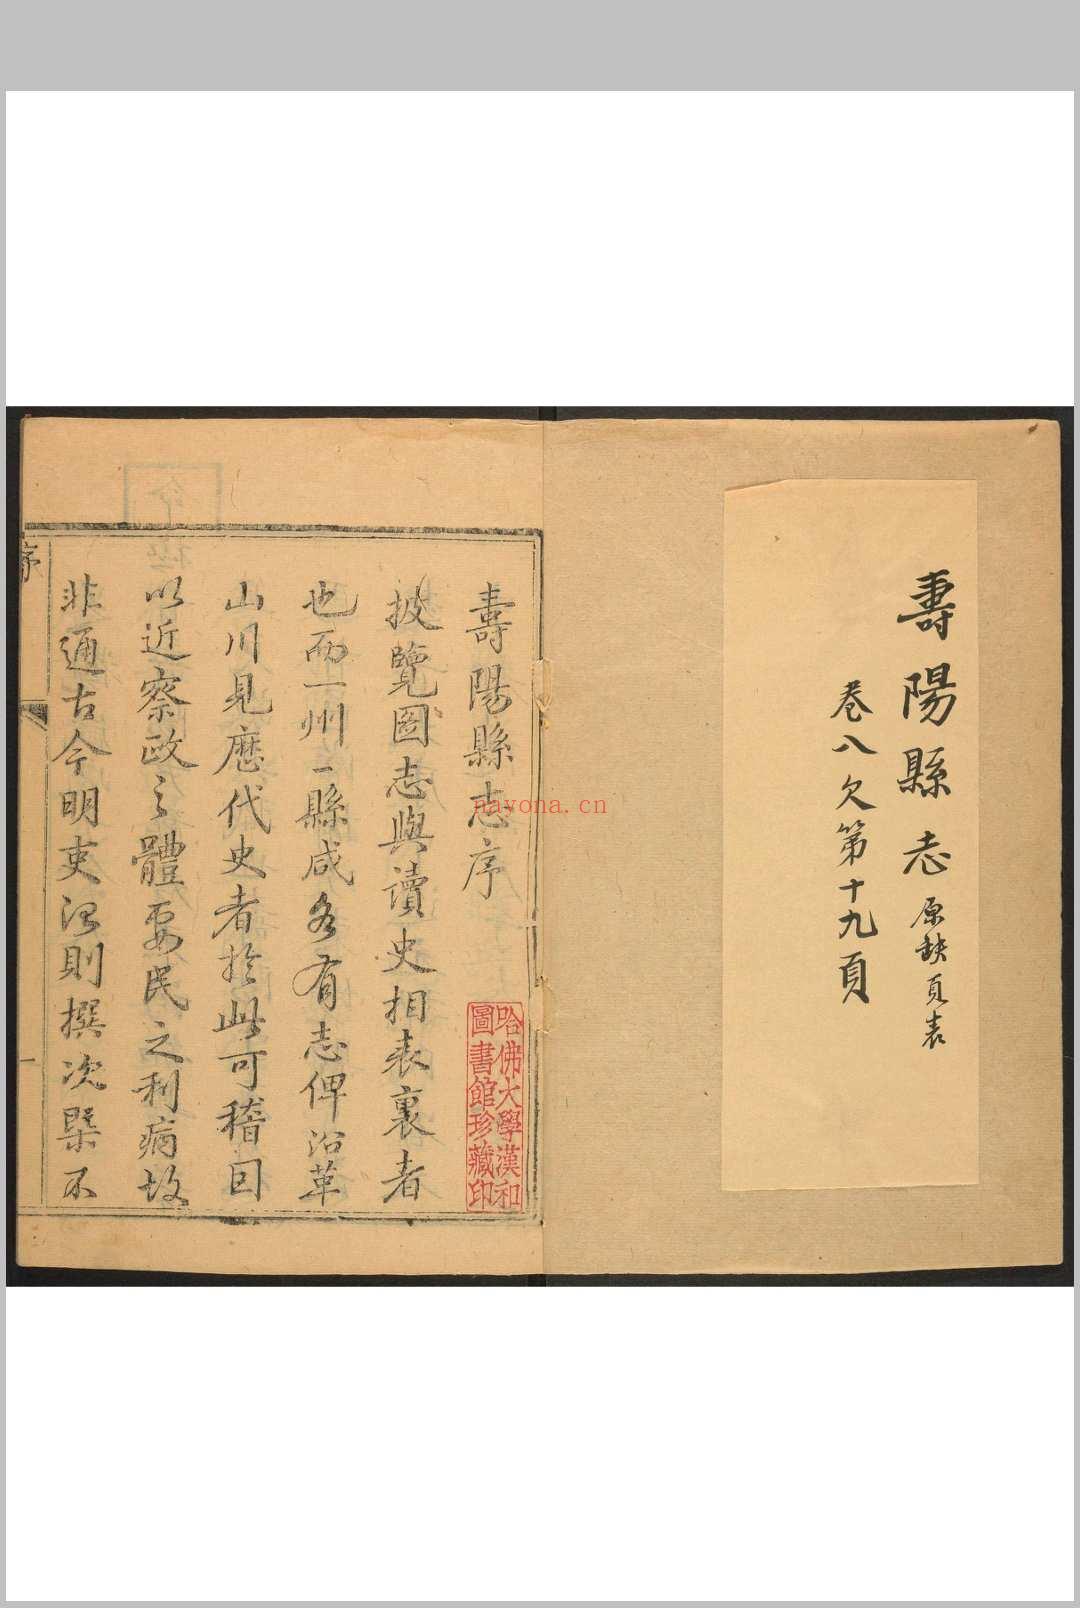 壽陽縣志 原缺頁表
卷八欠第十九頁
壽陽縣志序
披覽圖志與讀史相表裏者
也而一州一縣咸各有志俾沿革
山川見歷代史者於此可稽因
以近察政之體要民之利病故
非通古今明吏治則撰次槩不
序
一
哈佛大學漢和
圖書館珍藏印
nayona.cn